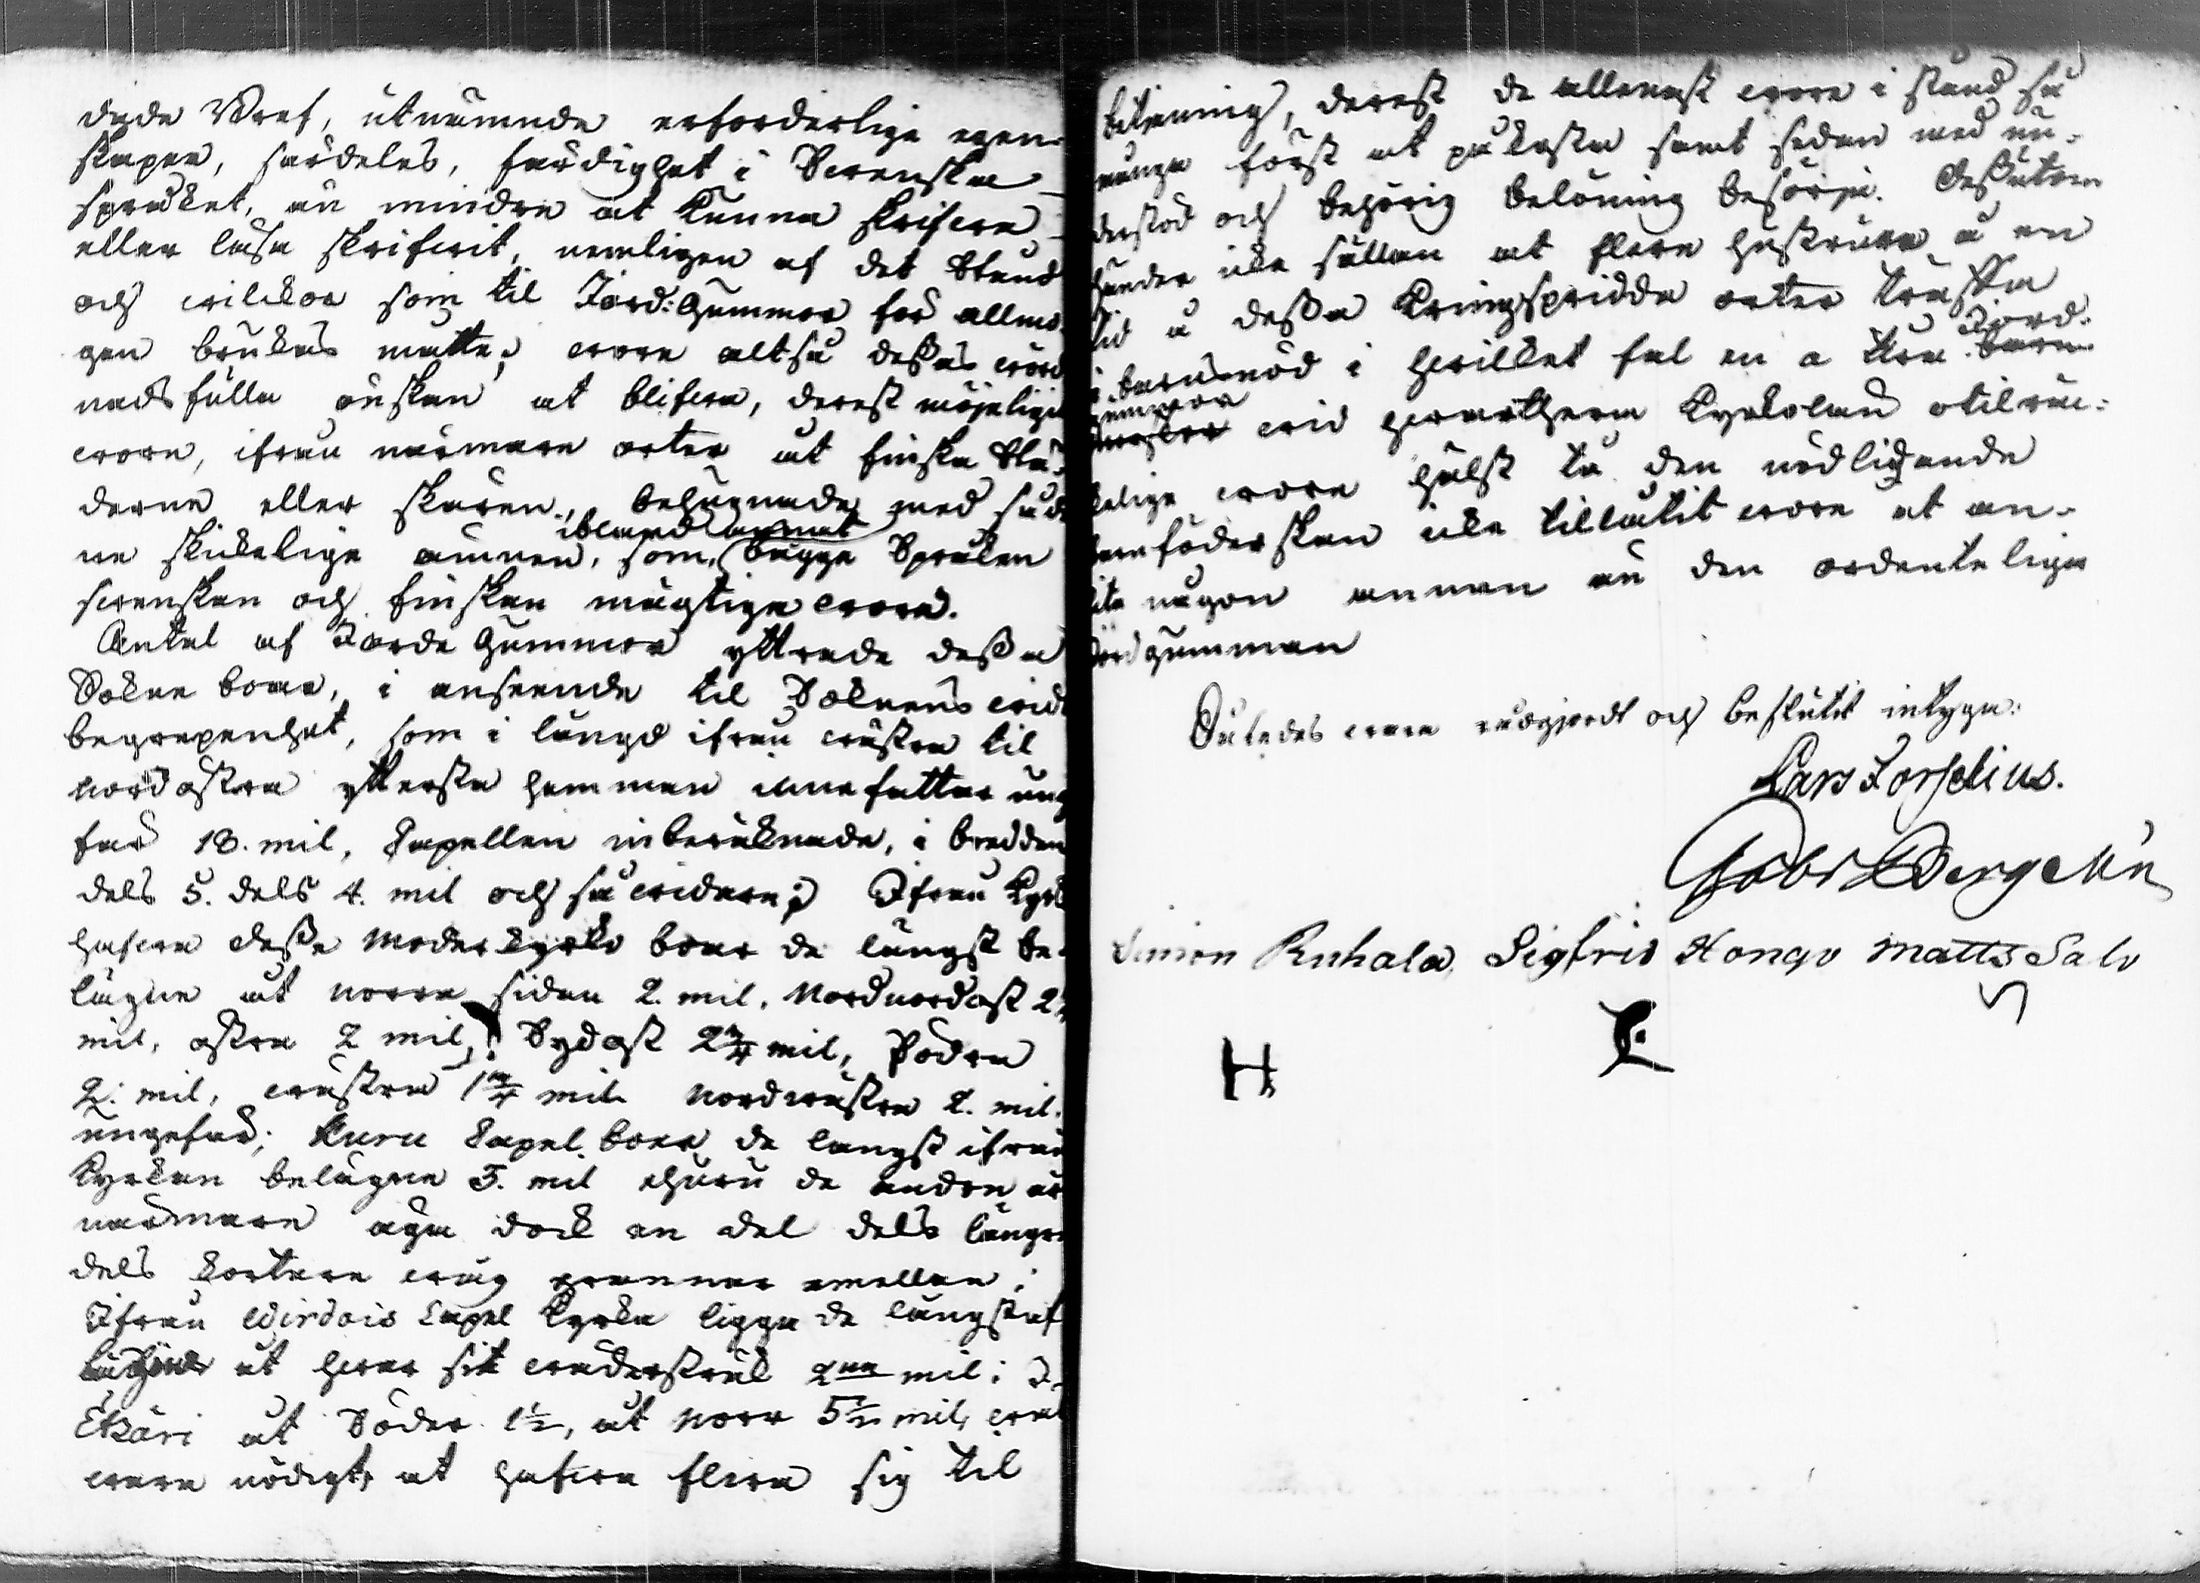 dade Bref, utnämnde erforderlige egen-
skaper, särdeles, färdighet i Swenska
språket, än mindre at kunna skrifwa
eller läsa skrifwit, nemligen af det stånd
och wilckor som til Jord: Gummor för allmo-
gen brukas måtte; wore altså dessas wörd
nadsfulla önskan at blifwa, derest möjeligit
wore, ifrån närmare orter åt finska Stä-
derne eller skären, behägnade med såda
ne skickelige ämnen, som, ibland annat bägge Språken
swenskan och finskan mägtiga wore.
Antal af Jorde Gummor yttrade dessa
Sokne boar, i anseende til Soknens wid
begrepenhet, som i längd ifrån wästra til
nordostra ytterste hemman innefattar ung
fär 18. mil, Capellen inberäknade, i bredden
dels 5. dels 4. mil och så widare; Ifrån Kyrk
hafwa desse Moderkyrko boar de längst be-
lägne åt norra sidan 2. mil, Nordnordost 2
mil, ostra 2 mil, Sydost 2¾ mil, Södra
2. mil, wästra 1¾ mil Nordwästra 2. mil.
ungefär; Kuru Capel boar de längst ifrån
Kyrkan belägne 3. mil ehuru de andre är
närmare äga dock en del dels längre
dels kortare wäg grannar emellan;
Ifrån Wirdois Capel Kyrka ligga de längst af
lägne åt hwar sit wäderstrek 2ne mil; I
Etzäri åt Söder 1½, åt Norr 5½ mil,
ware nödigt, at hafwa flera sig til
betjening, derest de allenast wore i stånd så
många först at påkosta samt sedan med un-
derstöd och behörig belöning besörja. Dessutom
händer icke sällan at flera hustrurar å en
tid å dessa kringspridda orter träffa
i barnsnöd i hwilket fal en a två Jord-
gummor wid hwarthera Kyrkolan otilräc-
kelige wore hälst då den nödlidande
barnföderskan icke tillåtit wore at an-
lita någon annan än den ordentelige
Jordgumman
Således wara med gjordt och beslutit intyga:
Lars Forselius.
Gabr Bergelin
Simon Ruhala Sigfrid Hongo Matts Salo
H